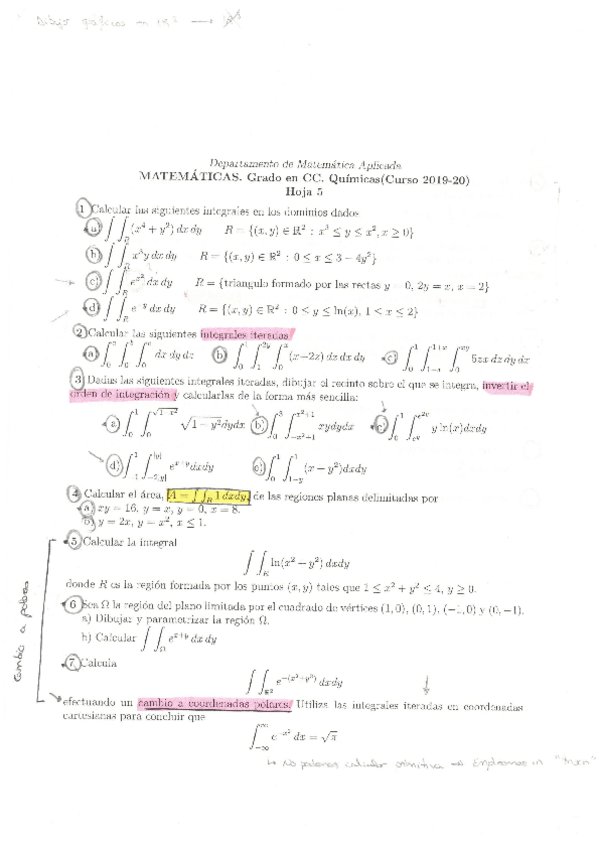 Dibujar gráficas en R²
Departamento de Matemática Aplicada
MATEMÁTICAS. Grado en CC. Químicas(Curso 2019-20)
Hoja 5
1 Calcular las siguientes integrales en los dominios dados
a) ∫∫_R (x⁴ + y²) dx dy R = {(x, y) ∈ ℝ² : x³ ≤ y ≤ x², x ≥ 0}
b) ∫∫_R x³y dx dy R = {(x, y) ∈ ℝ² : 0 ≤ x ≤ 3 − 4y²}
c) ∫∫_R e^{x²} dx dy R = {triangulo formado por las rectas y = 0, 2y = x, x = 2}
d) ∫∫_R e^{-y} dx dy R = {(x, y) ∈ ℝ² : 0 < y ≤ ln(x), 1 < x ≤ 2}
2 Calcular las siguientes integrales iteradas
a) dx dy dz b) ∫_0^1 ∫_1^{2y} ∫_0^x (x−2z) dz dx dy c) 5xz dz dy dx
3 Dadas las siguientes integrales iteradas, dibujar el recinto sobre el que se integra, invertir el
orden de integración y calcularlas de la forma más sencilla:
a) ∫_0^1 ∫_0^{√1−x²} √1 − y² dydx b) ∫_0^3 ∫_{−x²+1}^{x²+1} xydydx c) y ln(x)dxdy
d) dxdy e) ∫_0^1 ∫_{1−y}^1 (x − y²)dxdy
4 Calcular el área, A = ∫∫_R 1 dxdy, de las regiones planas delimitadas por
a) xy = 16, y = x, y = 0, x = 8.
b) y = 2x, y = x², x ≤ 1.
5 Calcular la integral
∫∫_R ln(x² + y²) dxdy
donde R es la región formada por los puntos (x, y) tales que 1 ≤ x² + y² ≤ 4, y ≥ 0.
6 Sea Ω la región del plano limitada por el cuadrado de vértices (1, 0), (0, 1), (−1, 0) y (0, −1).
a) Dibujar y parametrizar la región Ω.
b) Calcular ∫∫_Ω e^{x+y} dx dy
7 Calcula
∫∫_{ℝ²} e^{−(x²+y²)} dxdy
efectuando un cambio a coordenadas polares. Utiliza las integrales iteradas en coordenadas
cartesianas para concluir que
∫_{−∞}^{∞} e^{−x²} dx = √π
↳ No podemos calcular primitiva →
cambio a polares